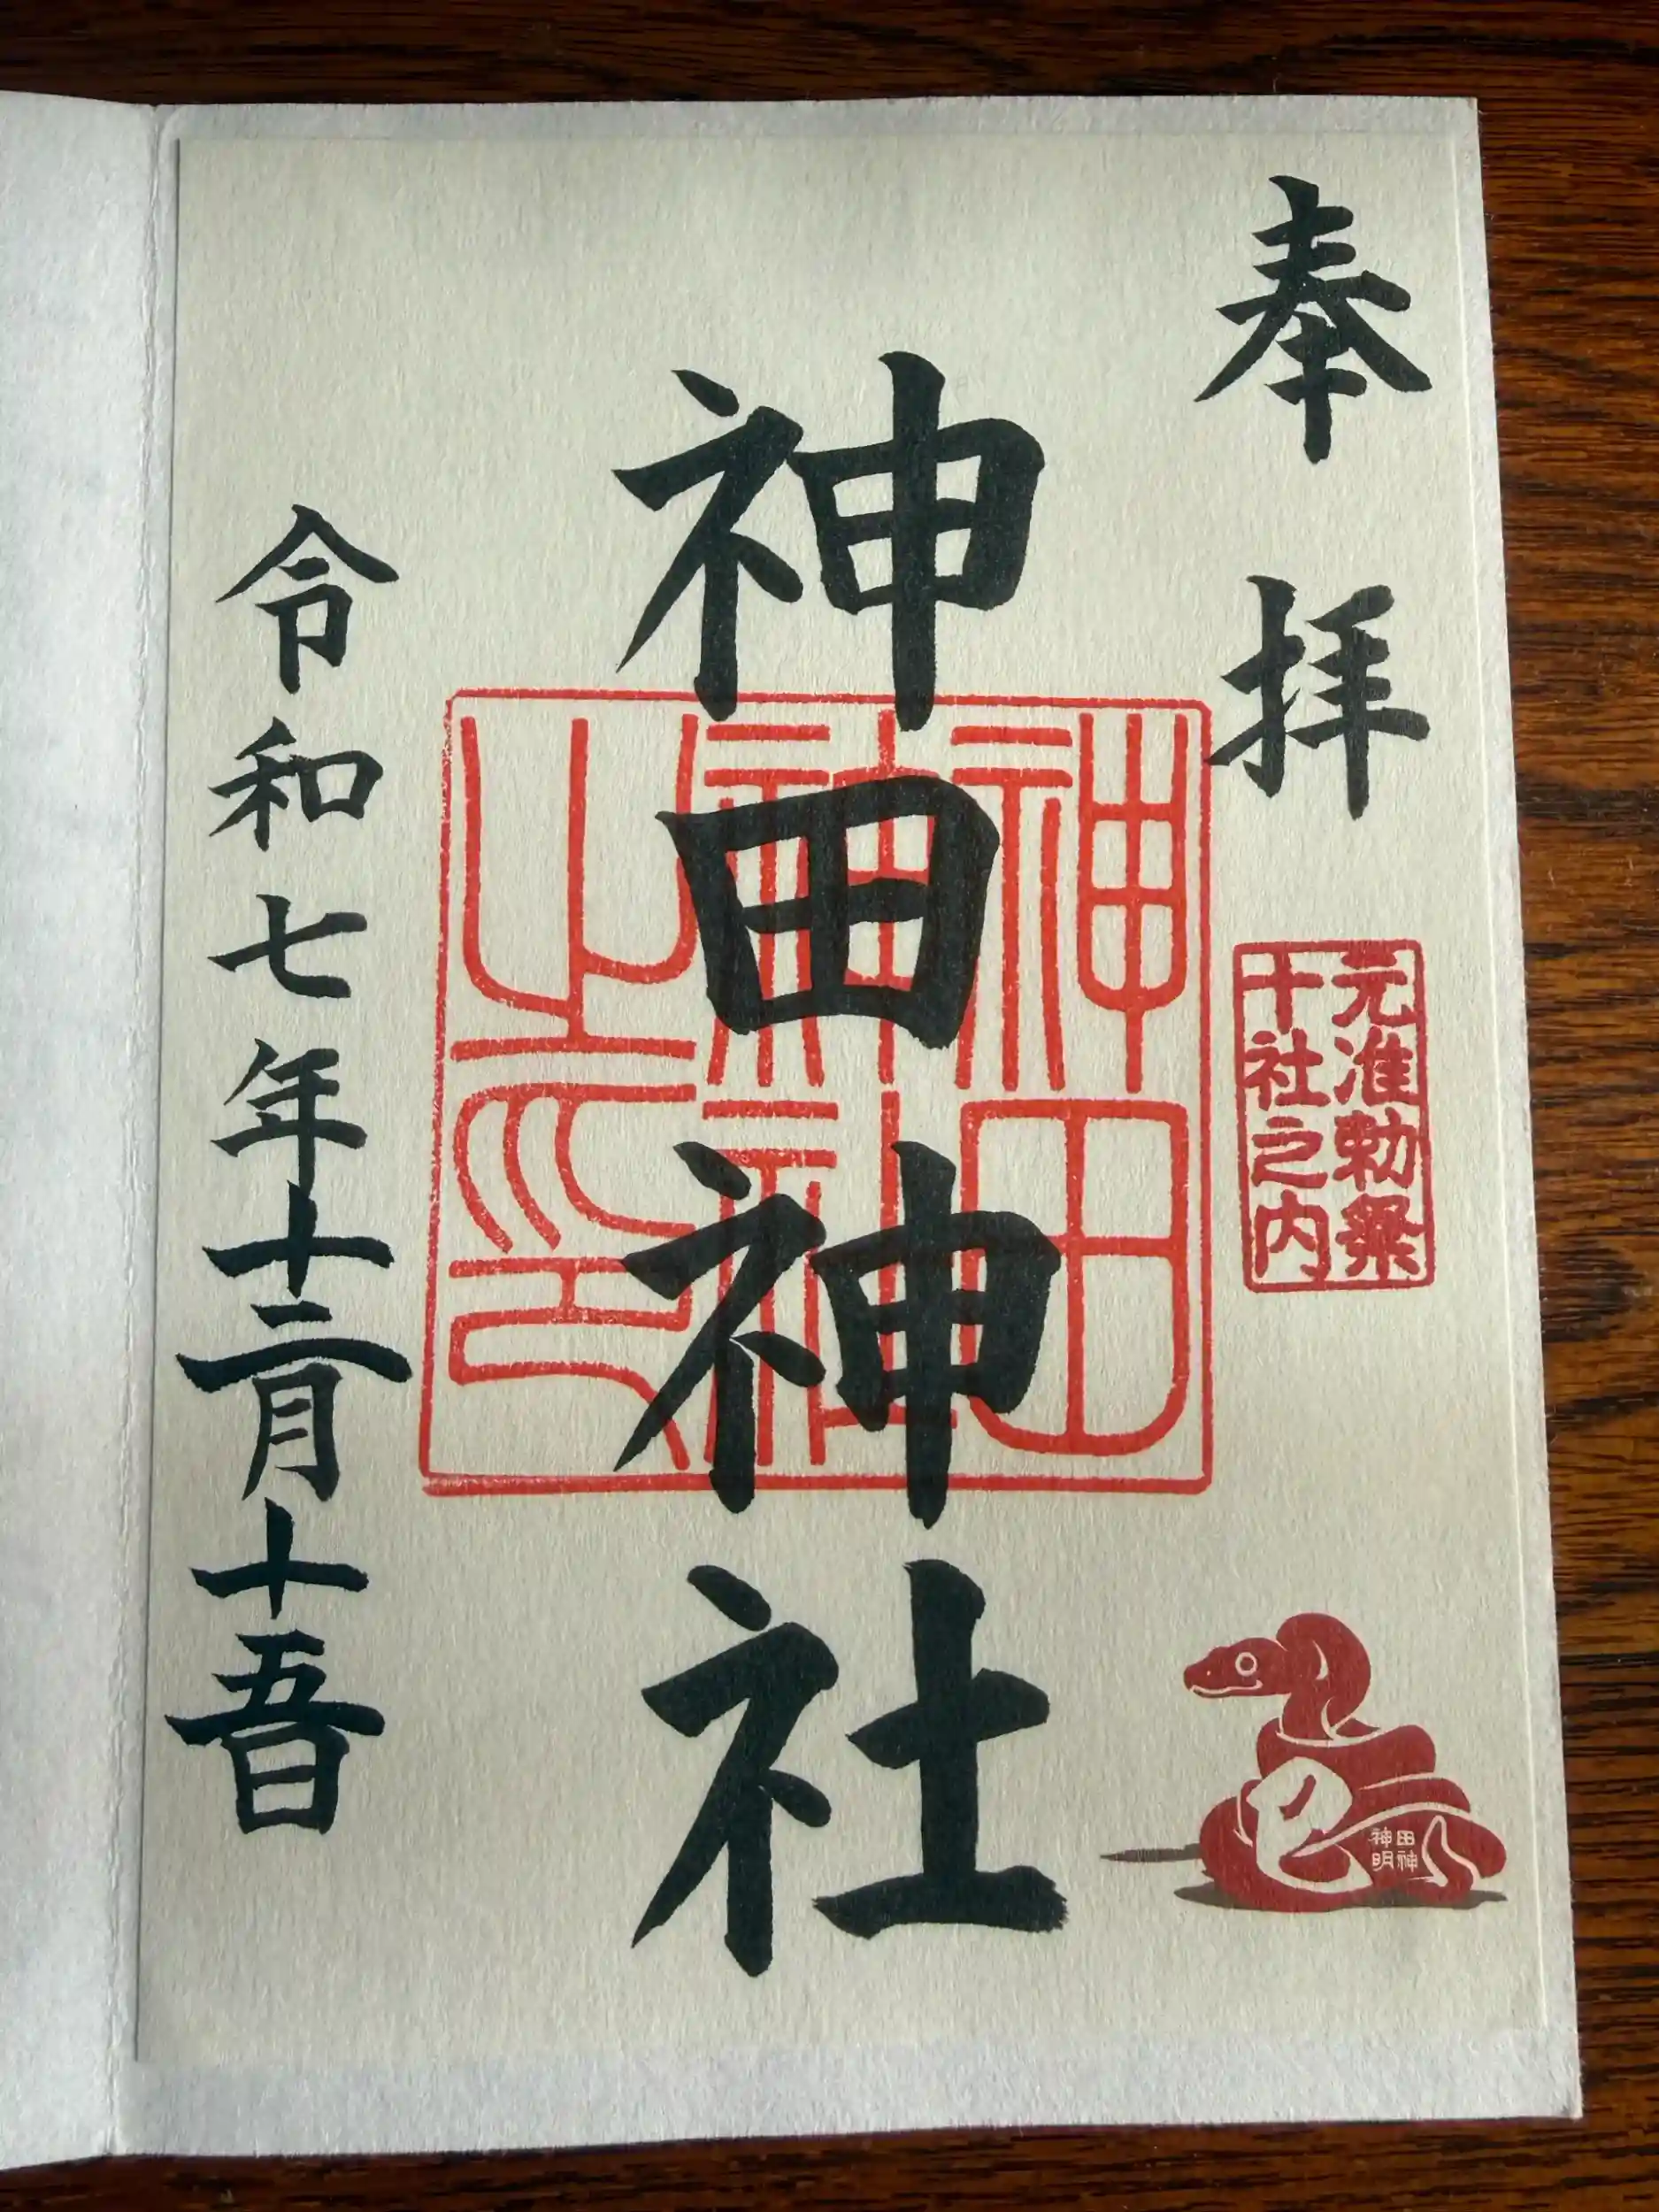 奉拝
元准勅祭
十社之内
巳
田神
神明
神田神社
神田
神社
之印
令和七年十二月十五日